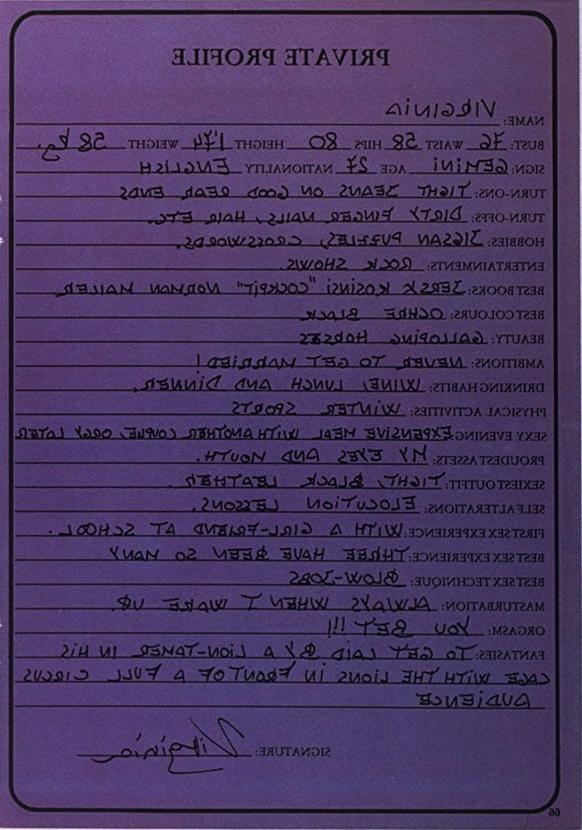 PRIVATE PROFILE
NAME: VIRGINIA
BUST: 76 WAIST 58 HIPS 80 HEIGHT 1'74 WEIGHT 58 kg.
SIGN: GEMINI AGE 27 NATIONALITY ENGLISH
TURN-ONS: TIGHT JEANS ON GOOD REAR ENDS
TURN-OFFS: DIRTY FINGER NAILS, HAIR ETC.
HOBBIES: JIGSAN PUZZLES, CROSSWORDS.
ENTERTAINMENTS: ROCK SHOWS.
BEST BOOKS: JERSEK KOSINSI "COCKPIT" NORMAN MAILER
BEST COLOURS: OCHRE BLACK
BEAUTY: GALLOPING HORSES
AMBITIONS: NEVER TO GET MARRIED!
DRINKING HABITS: WINE, LUNCH AND DINNER.
PHYSICAL ACTIVITIES: WINTER SPORTS
SEXY EVENING: EXPENSIVE MEAL WITH ANOTHER COUPLE, ORGY LATER
PROUDEST ASSETS: MY EYES AND MOUTH.
SEXIEST OUTFIT: TIGHT, BLACK LEATHER.
SELF ALTERATIONS: ELOCUTION LESSONS.
FIRST SEX EXPERIENCE: WITH A GIRL-FRIEND AT SCHOOL.
BEST SEX EXPERIENCE: THREE HAVE BEEN SO MANY
BEST SEX TECHNIQUE: BLOW-JOBS
MASTURBATION: ALWAYS WHEN I WAKE UP.
ORGASM: YOU BET!!!
FANTASIES: TO GET LAID BY A LION-TAMER IN HIS
CAGE WITH THE LIONS IN FRONT OF A FULL CIRCUS
AUDIENCE
SIGNATURE: Virginia
66